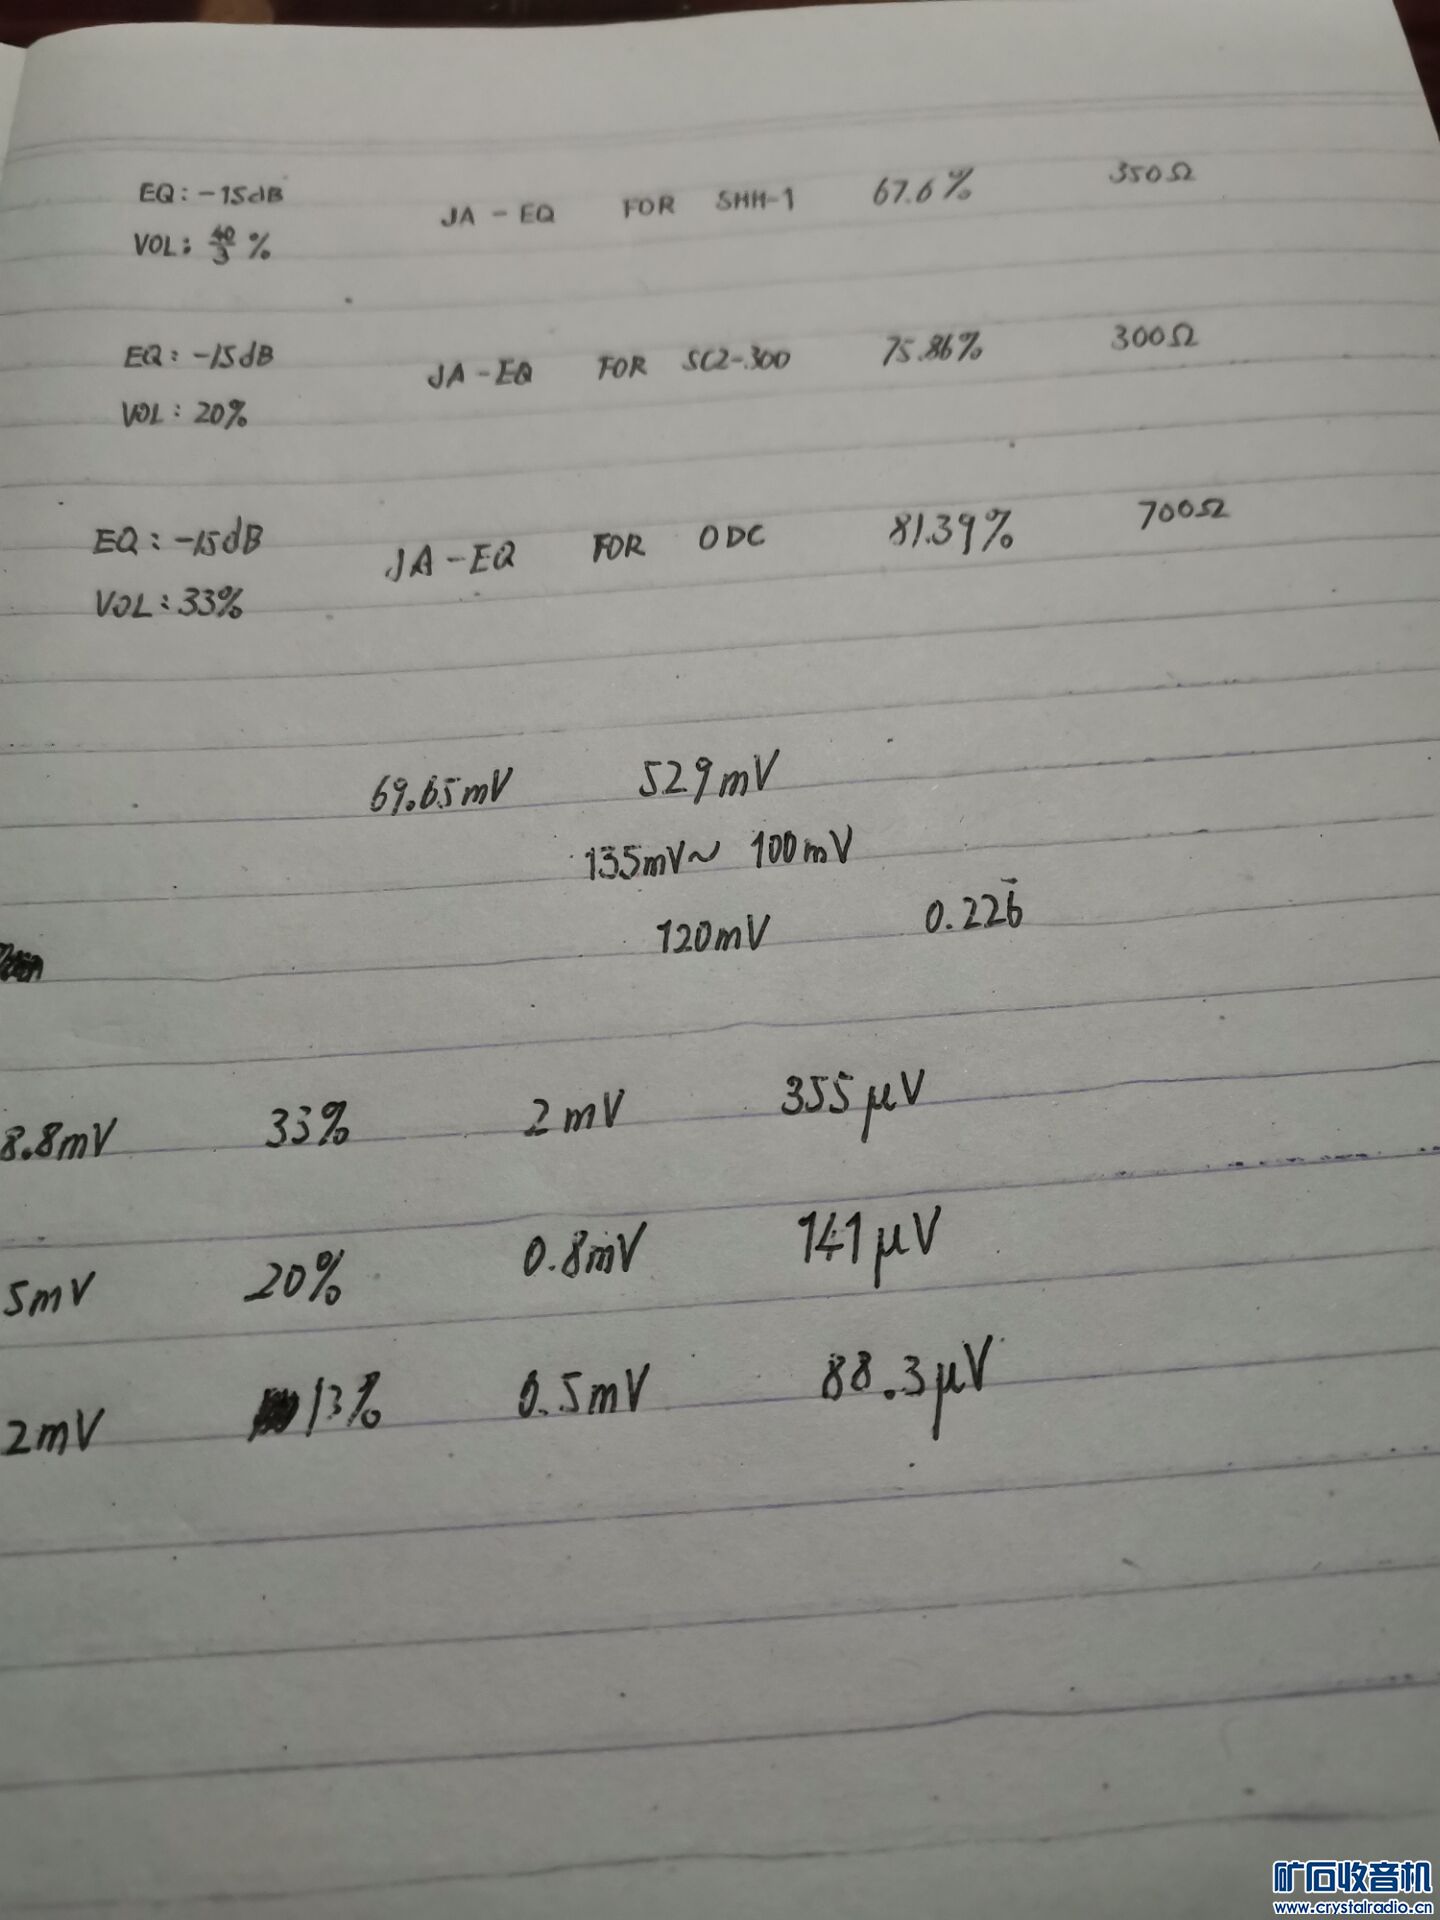 EQ: -15dB JA - EQ FOR SHH-1 67.6% 350Ω
VOL: 40/3 %
EQ: -15dB JA - EQ FOR SC2-300 75.86% 300Ω
VOL: 20%
EQ: -15dB JA - EQ FOR ODC 81.39% 700Ω
VOL: 33%
69.65mV 529mV
135mV~ 100mV
120mV 0.226̄
8.8mV 33% 2mV 355μV
5mV 20% 0.8mV 141μV
2mV 13% 0.5mV 88.3μV
矿石收音机
www.crystalradio.cn